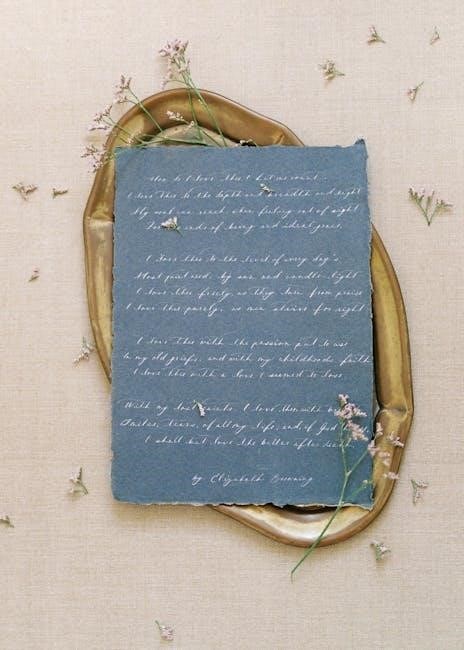 How do I love thee? Let me count.
I love thee to the depth and breadth and hight
My soul can reach, when feeling out of sight
For the ends of being and ideal grace.
I love thee to the level of every day's
Most quiet need, by sun and candle-light
I love thee freely, as they turn from praise
I love thee purely, as men strive for right
I love thee with the passion put to use
In my old griefs, and with my childhoods faith
I love thee with a love I seemed to lose
With my lost saints. I love thee with
Smiles, tears, of all my life, and if God
I shall but love thee better after death.
by Elizabeth Browning